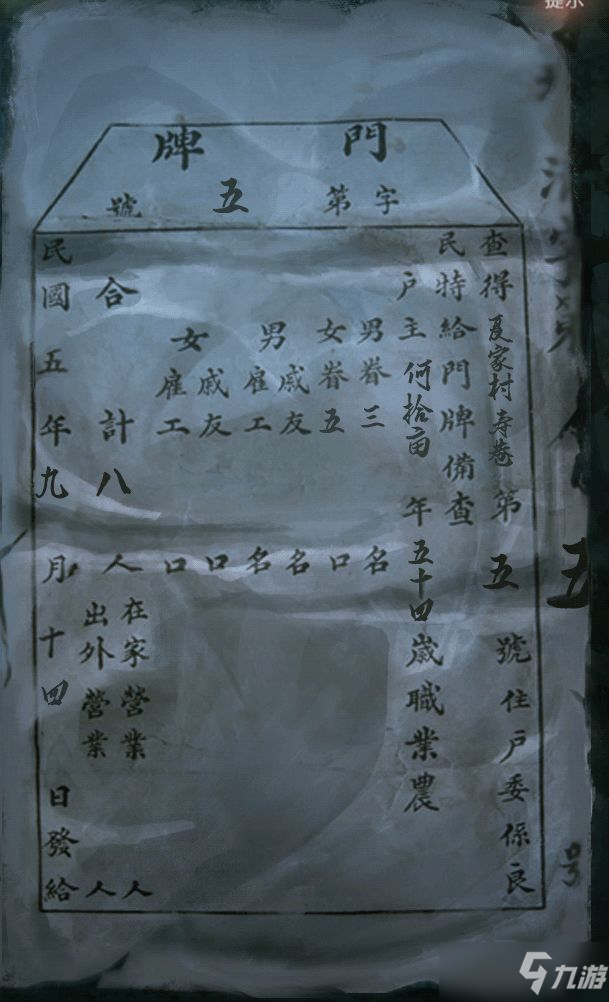 門牌
字第五號
查得夏家村寺巷第五號住戶委保良
民特給門牌備查
户主何拾亩年五十四歲職業農
男眷三名
女眷五口
男
戚友名
雇工名
女
戚友口
雇工口
合計八人
在家營業人
出外營業人
民國五年九月十四日發給
五
号
九游